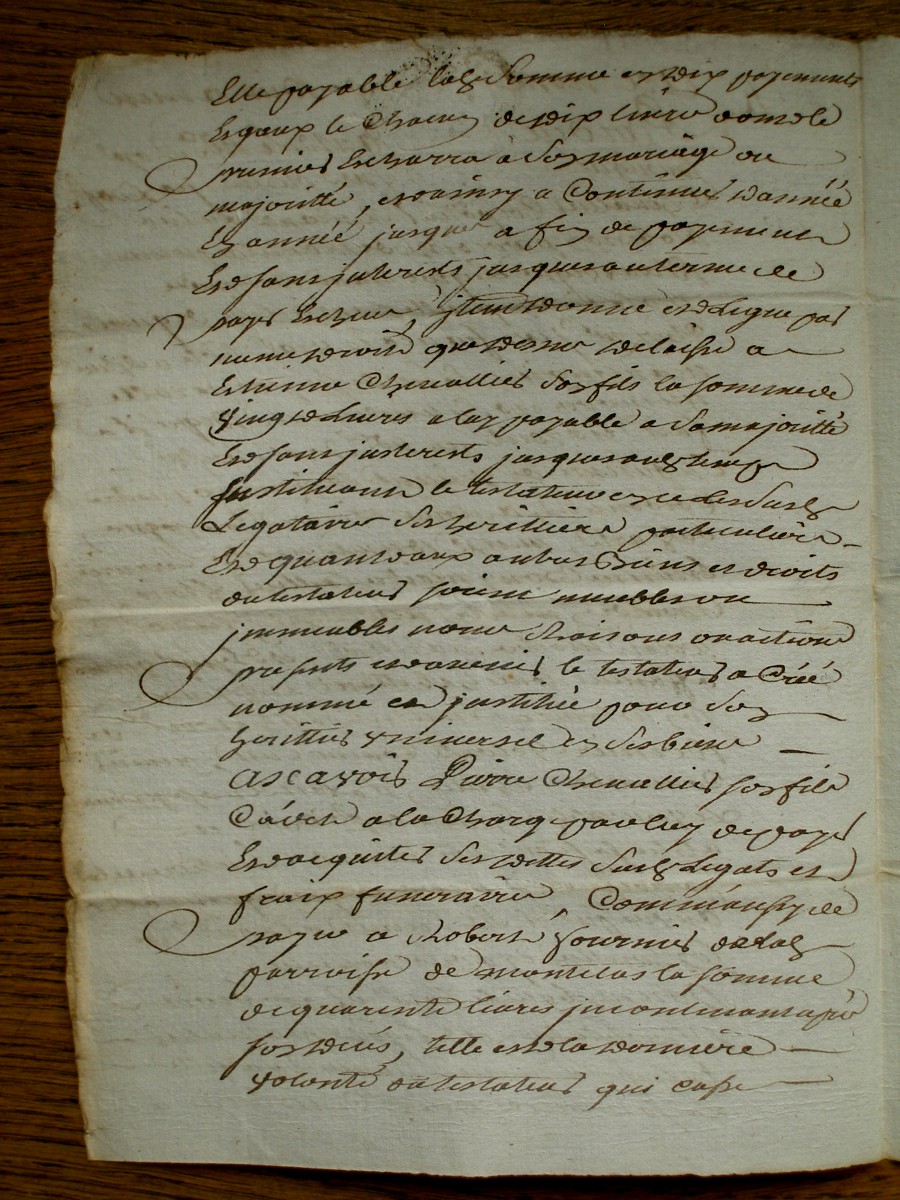 Elle payable lad somme en dix payements
Egaux le chacun de dix livre dont le
premier Escherra à son mariage ou
majoritté, et ainsy a Continuer d'année
En année jusques a fin de payement
Et sans jnterests jusques au terme de
paye Escheu, jtem donne et Legue par
meme droit que dessus delaisse a
Estienne Chevallier son fils la somme de
vingt Livres a luy payable a sa majoritté
Et sans jnterests jusques aud temps
Jnstituant le testateur ce les susd
Legataires ses herittiers particuliers
Et quant aux autres Biens et droits
du testateur soient meubles ou
jmmeubles noms Raisons ou actions
presents et avenir le testateur a Créé
nommé et jnstitué pour son
herittier vniversel en ses biens
ascavoir Pierre Chevallier son fils
Cadet a la Charge par luy de payer
Et acquiter ses dettes susd Legats et
fraix funeraires, Comm'aussy de
payer a Robert fournier de lad
parroisse de montelas la somme
de quarente livres jncontinant après
son decés, telle est la derniere
volonté du testateur qui casse